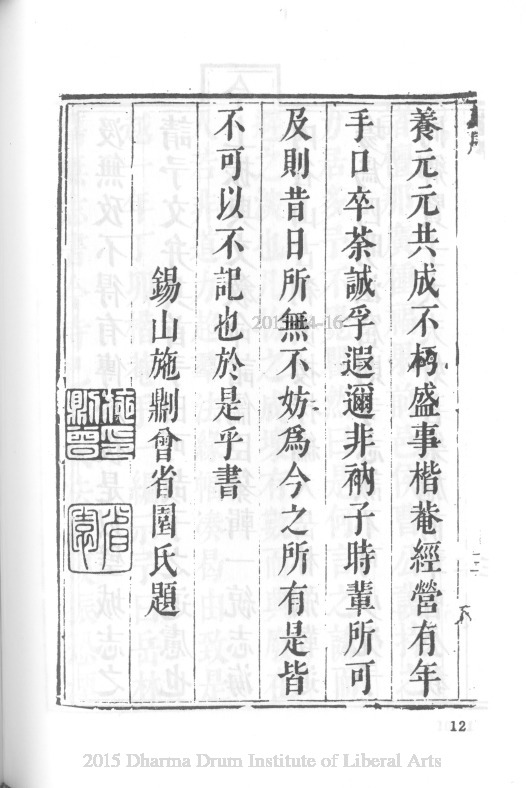 養元元共成不朽盛事楷菴經營有年
手口卒荼誠孚遐邇非衲子時輩所可
及則昔日所無不妨爲今之所有是皆
不可以不記也於是乎書
錫山施劓曾省園氏題
省園
12
2015 Dharma Drum Institute of Liberal Arts